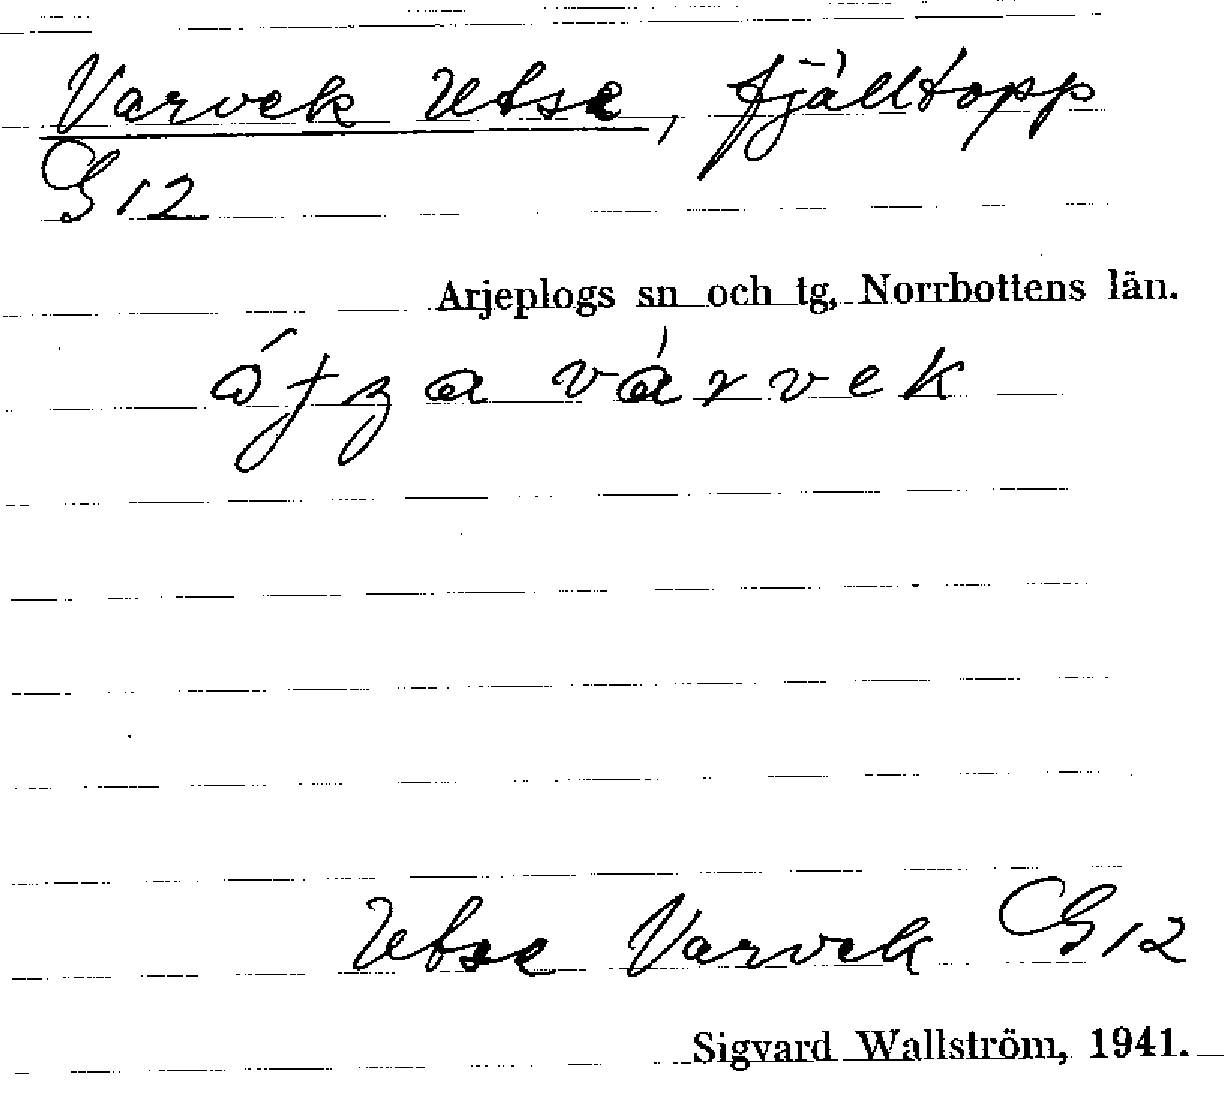 Varvek Utse, fjälltopp
G 12
Arjeplogs sn och tg, Norrbottens län.
várvek
Utse Varvek G 12
Sigvard Wallström, 1941.